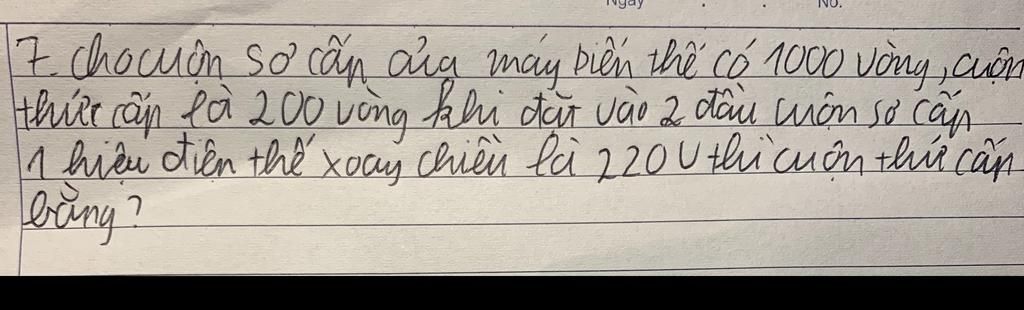 Ngày . . No.
7. Cho cuộn sơ cấp của máy biến thế có 1000 vòng, cuộn
thức cấp là 200 vòng khi đặt vào 2 đầu cuộn sơ cấp
1 hiệu điện thế xoay chiều là 220 V thì cuộn thứ cấp
bằng?